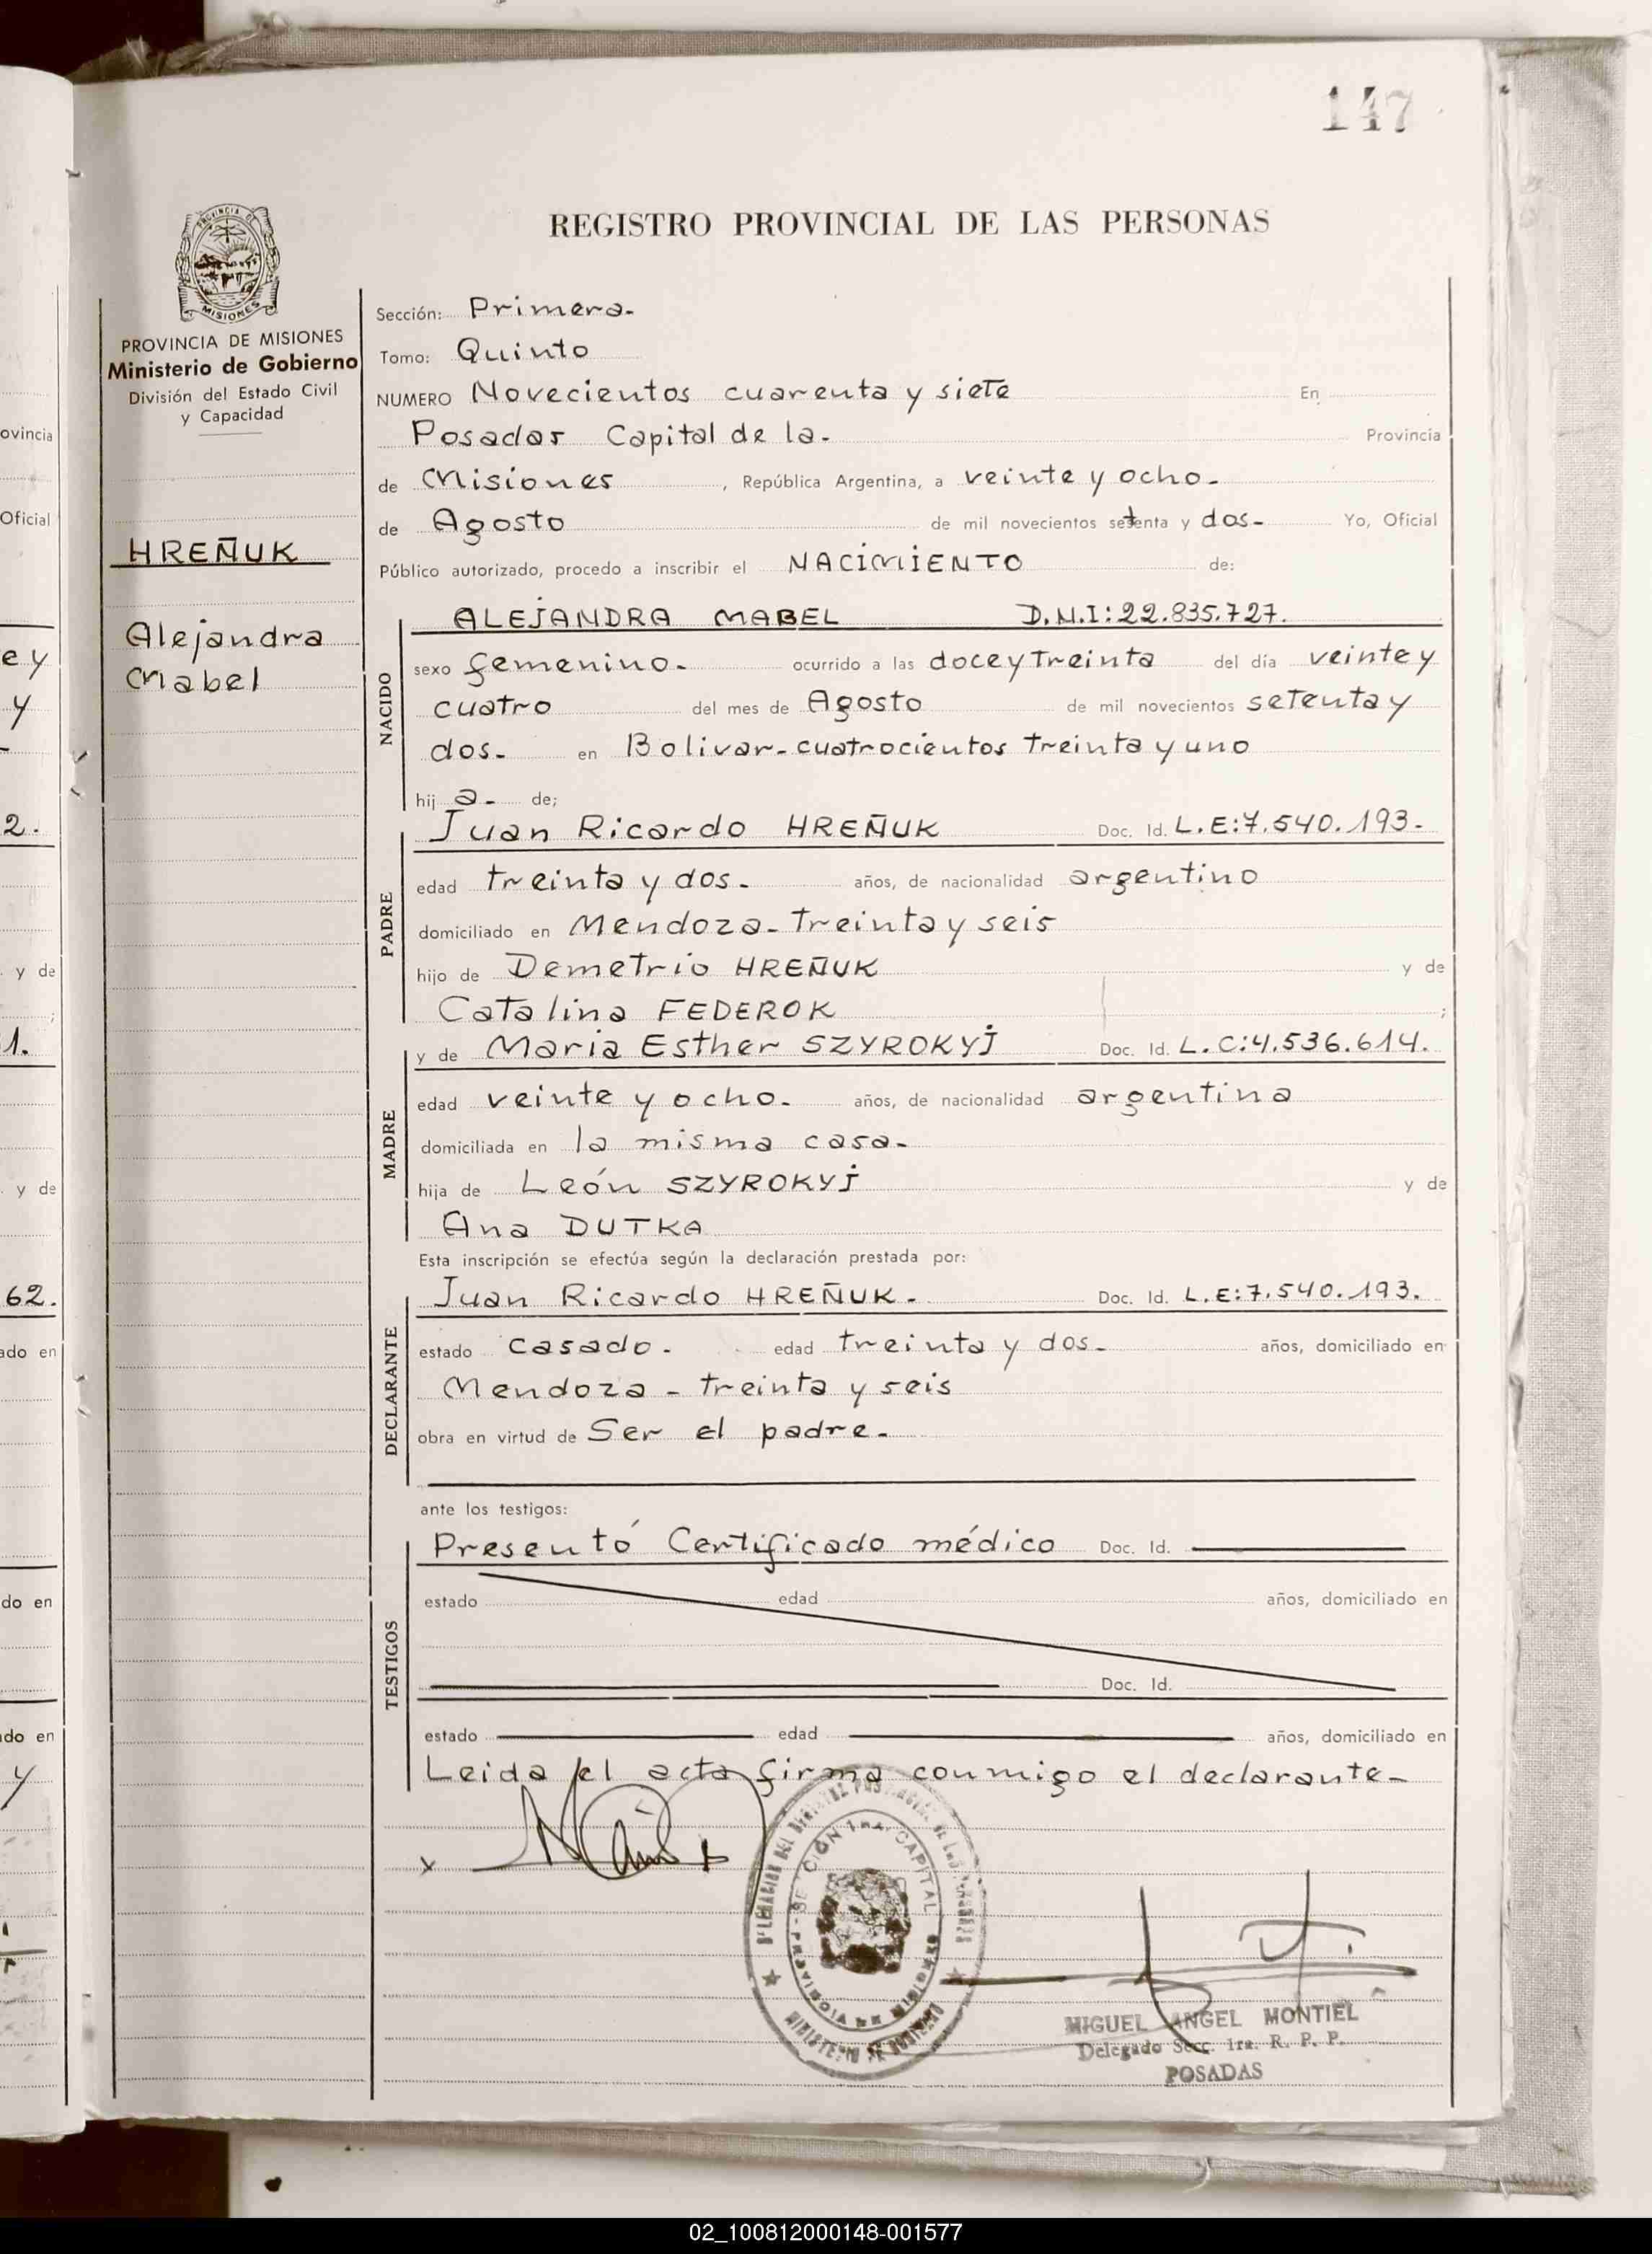 147
REGISTRO PROVINCIAL DE LAS PERSONAS
PROVINCIA DE
MISIONES
PROVINCIA DE MISIONES
Ministerio de Gobierno
División del Estado Civil
y Capacidad
HREÑUK
Alejandra
Mabel
Sección: Primera.
Tomo: Quinto
NUMERO Novecientos cuarenta y siete En
Posadas Capital de la. Provincia
de Misiones , República Argentina, a veinte y ocho.
de Agosto de mil novecientos setenta y dos. Yo, Oficial
Público autorizado, procedo a inscribir el NACIMIENTO de:
NACIDO
ALEJANDRA MABEL D.N.I:22.835.727.
sexo femenino. ocurrido a las doce y treinta del día veinte y
cuatro del mes de Agosto de mil novecientos setenta y
dos. en Bolivar-cuatrocientos treinta y uno
hij a. de;
PADRE
Juan Ricardo HREÑUK Doc. Id. L.E:7.540.193.
edad treinta y dos. años, de nacionalidad argentino
domiciliado en Mendoza-treinta y seis
hijo de Demetrio HREÑUK y de
Catalina FEDEROK ;
MADRE
y de Maria Esther SZYROKYJ Doc. Id. L.C:4.536.614.
edad veinte y ocho. años, de nacionalidad argentina
domiciliada en la misma casa.
hija de León SZYROKYJ y de
Ana DUTKA
Esta inscripción se efectúa según la declaración prestada por:
DECLARANTE
Juan Ricardo HREÑUK. Doc. Id. L.E:7.540.193.
estado casado. edad treinta y dos. años, domiciliado en
Mendoza - treinta y seis
obra en virtud de Ser el padre.
ante los testigos:
TESTIGOS
Presentó Certificado médico Doc. Id.
estado edad años, domiciliado en
Doc. Id.
estado edad años, domiciliado en
Leida el acta firma conmigo el declarante.
x
SECCIÓN 1ra CAPITAL
PROVINCIA DE MISIONES
MINISTERIO DE GOBIERNO
MIGUEL ANGEL MONTIEL
Delegado Secc. 1ra. R. P. P.
POSADAS
ovincia
Oficial
e y
y
2.
y de
1.
y de
62.
ado en
do en
do en
y
02_100812000148-001577